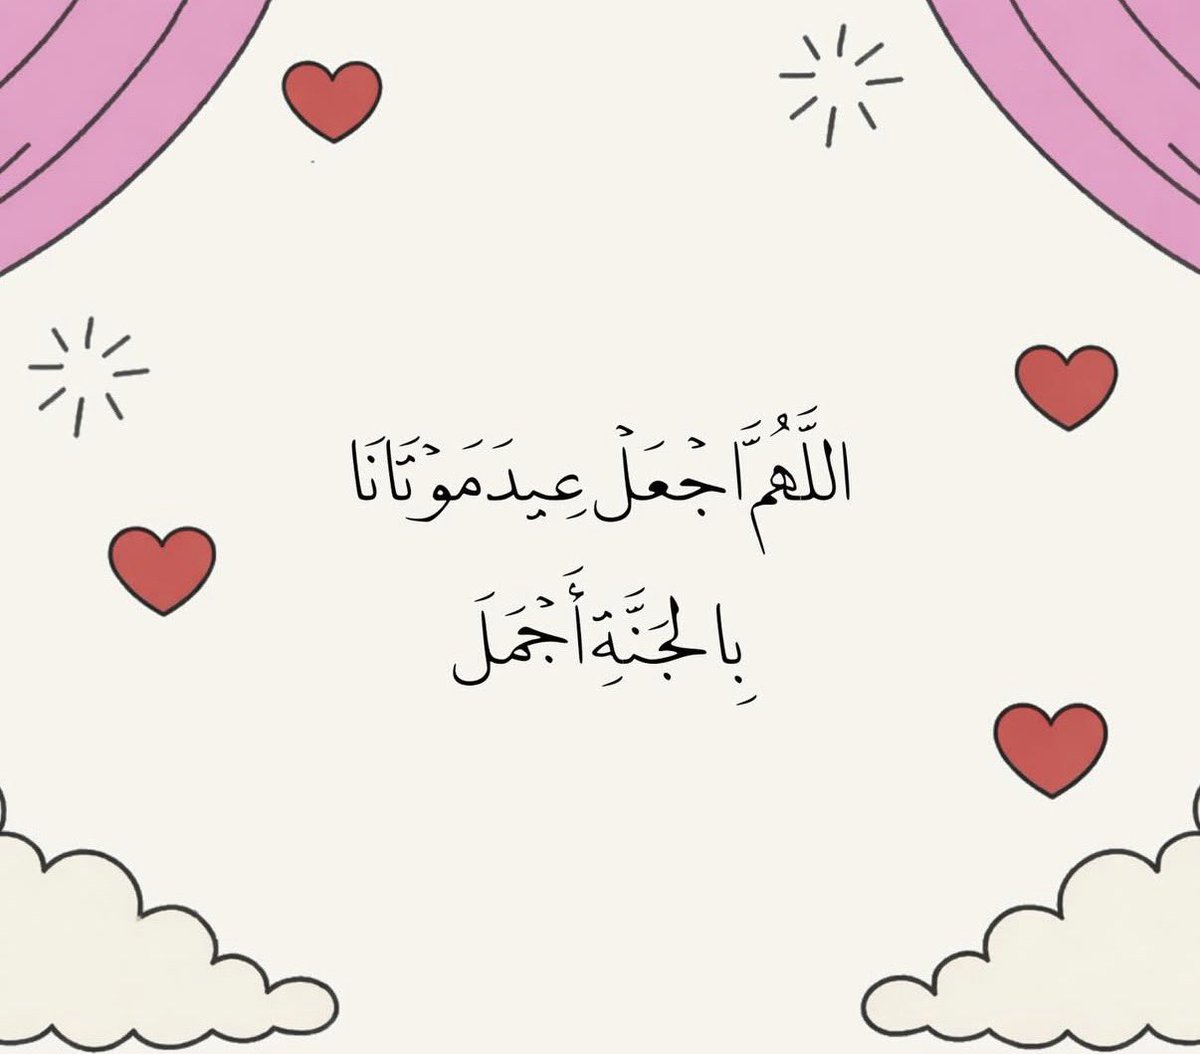 اللَّهُمَّ اجْعَلْ عِيدَ مَوْتَانَا
بِالجَنَّةِ أَجْمَلَ